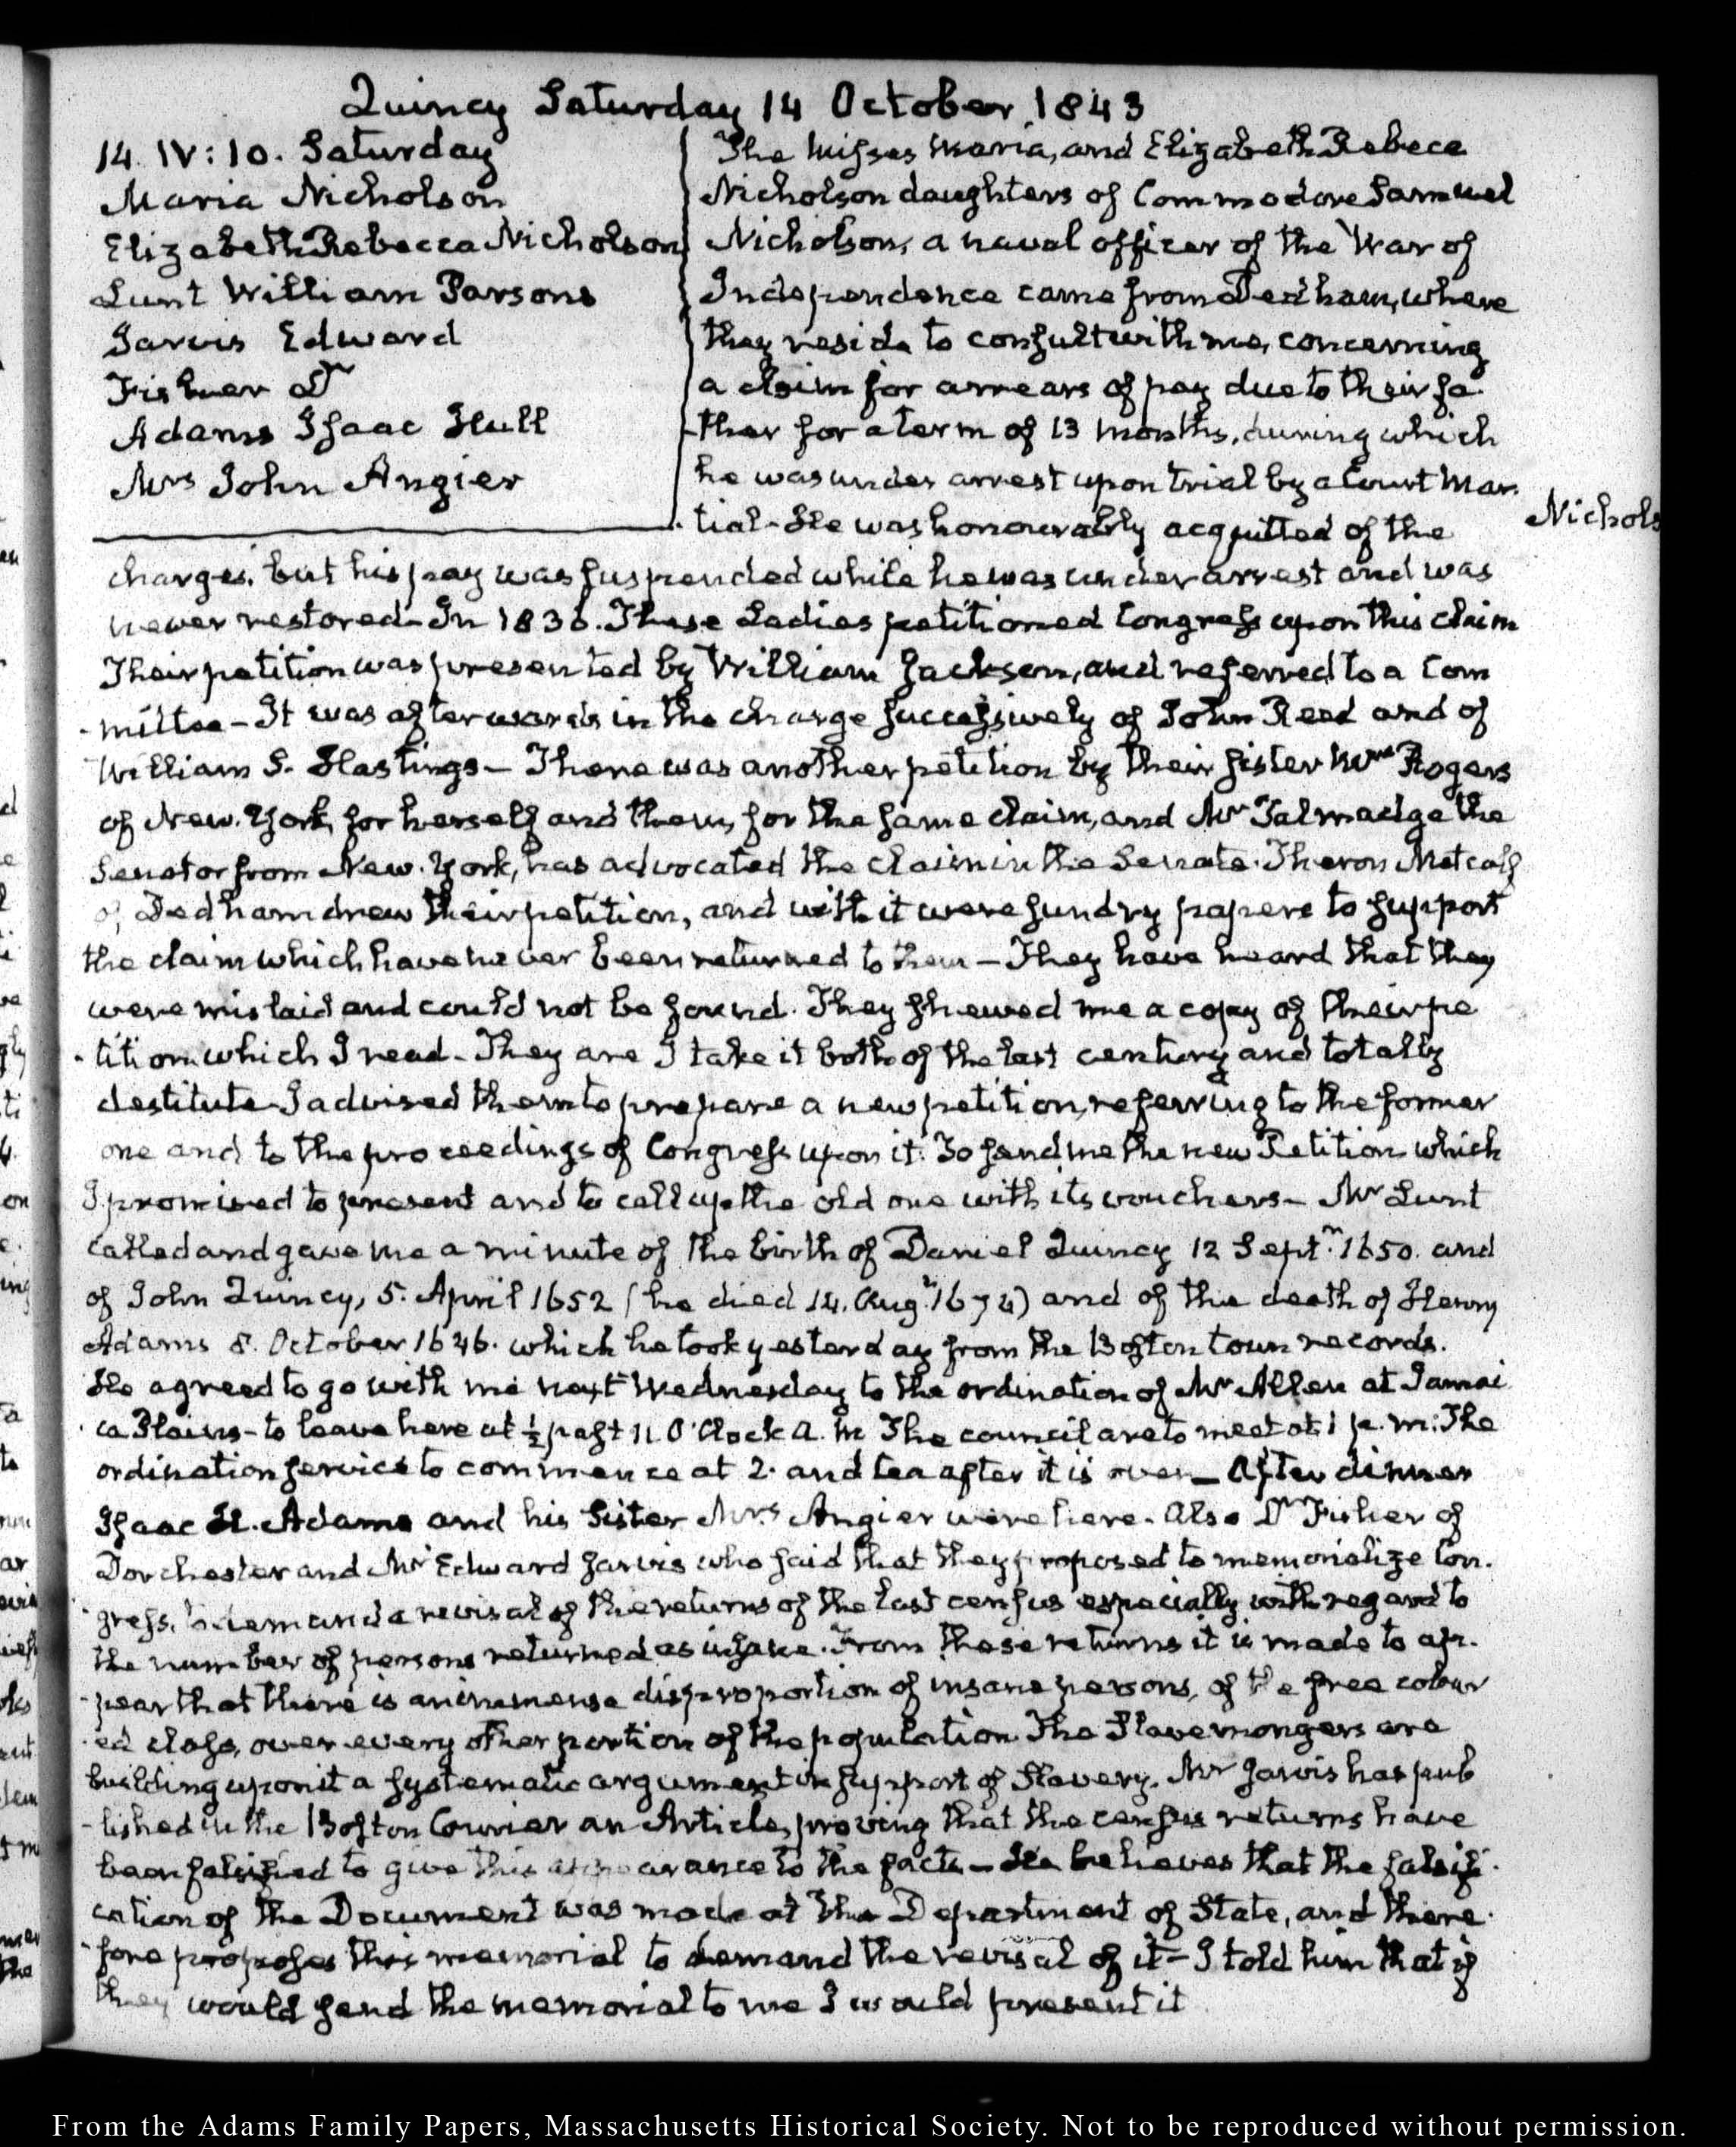 Quincy Saturday 14 October 1843
14. IV:10. Saturday
Maria Nicholson
Elizabeth Rebecca Nicholson
Lunt William Parsons
Jarvis Edward
Fisher Dr
Adams Isaac Hull
Mrs John Angier
The Misses Maria, and Elizabeth Rebecca
Nicholson daughters of Commodore Samuel
Nicholson, a naval officer of the War of
Independence came from Dedham, where
they reside to consult with me, concerning
a claim for arrears of pay due to their fa-
ther for a term of 13 months, during which
he was under arrest upon trial by a Court Mar-
tial- He was honourably acquitted of the
Nichols
charges, but his pay was suspended while he was under arrest and was
never restored- In 1836. These Ladies petitioned Congress upon this claim
Their petition was presented by William Jackson, and referred to a Com
-mittee- It was afterwards in the charge successively of John Reed and of
William S. Hastings- There was another petition by their sister Mrs Rogers
of New-York, for herself and them, for the same claim, and Mr Talmadge the
Senator from New-York, has advocated the claim in the Senate. Theron Metcalf
of Dedham drew their petition, and with it were sundry papers to support
the claim which have never been returned to them- They have heard that they
were mislaid and could not be found. They shewed me a copy of their pe
-tition which I read- They are I take it both of the last century and totally
destitute- I advised them to prepare a new petition, referring to the former
one and to the proceedings of Congress upon it. To send me the new Petition which
I promised to present and to call up the old one with its vouchers- Mr Lunt
called and gave me a minute of the birth of Daniel Quincy 12 Septr. 1650. and
of John Quincy, 5. April 1652 (he died 14. Augt. 1674) and of the death of Henry
Adams 8. October 1646. which he took yesterday from the Boston town records.
He agreed to go with me next Wednesday to the ordination of Mr Allen at Jamai
-ca Plains- to leave here at ½ past 11. O'Clock A. M. The council are to meet at 1 p. m: The
ordination service to commence at 2. and tea after it is over- After dinner
Isaac H. Adams and his Sister Mrs Angier were here. Also Dr Fisher of
Dorchester and Mr Edward Jarvis who said that they proposed to memorialize Con-
-gress, to demand a revisal of the returns of the last census especially with regard to
the number of persons returned as insane. From these returns it is made to ap-
-pear that there is an immense disproportion of insane persons, of the free colour
-ed class, over every other portion of the population. The Slavemongers are
building upon it a systematic argument in support of Slavery. Mr Jarvis has pub
-lished in the Boston Courier an Article, proving that the census returns have
been falsified to give this appearance to the facts- He believes that the falsifi-
cation of the Document was made at the Department of State, and there-
-fore proposes this memorial to demand the revisal of it- I told him that if
they would send the memorial to me I would present it
From the Adams Family Papers, Massachusetts Historical Society. Not to be reproduced without permission.